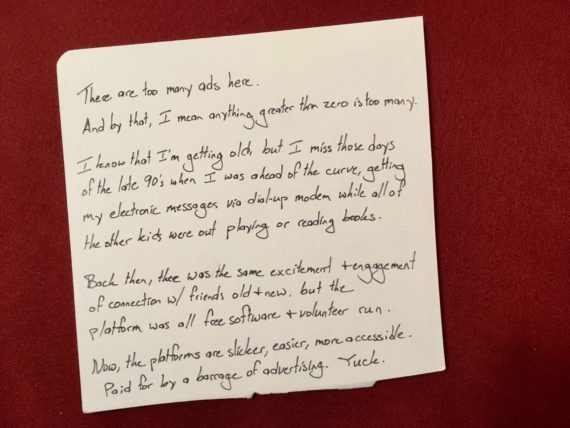 There are too many ads here.
And by that, I mean anything greater than zero is too many.
I know that I'm getting old, but I miss those days
of the late 90's when I was ahead of the curve, getting
my electronic messages via dial-up modem while all of
the other kids were out playing or reading books.
Back then, there was the same excitement + engagement
of connection w/ friends old + new, but the
platform was all free software + volunteer run.
Now, the platforms are slicker, easier, more accessible.
Paid for by a barrage of advertising. Yuck.